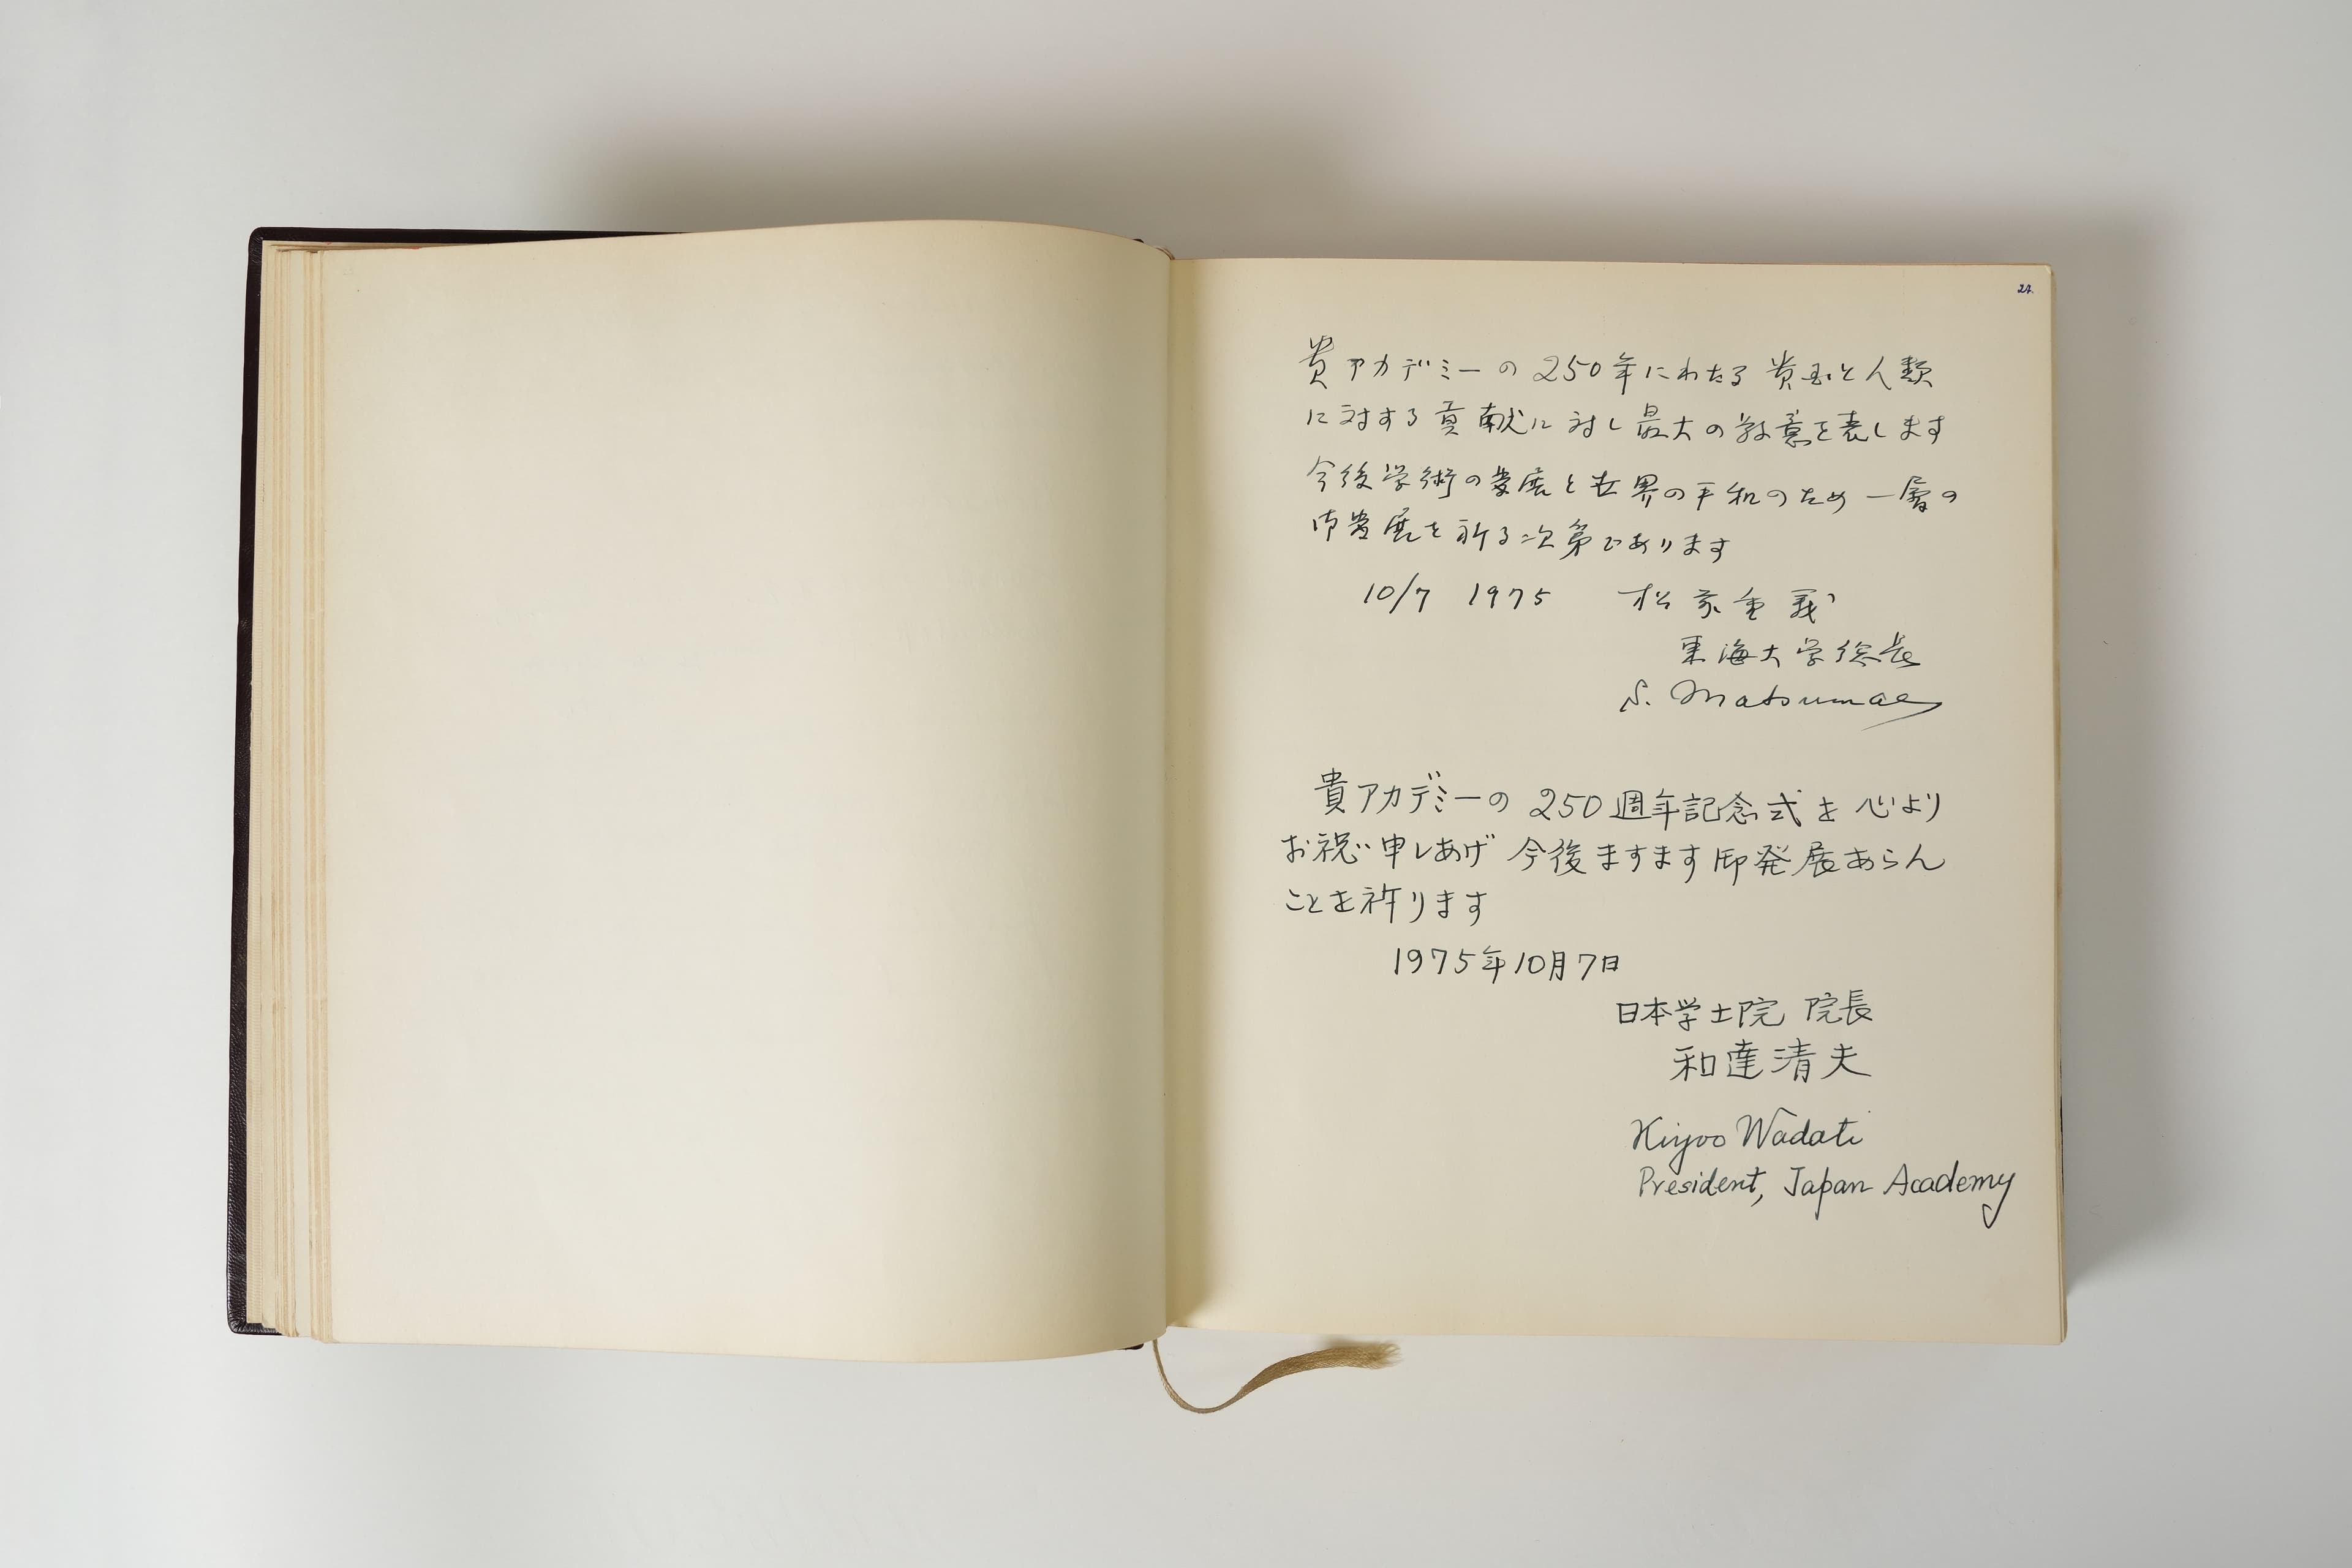 24.
貴アカデミーの250年にわたる貴国と人類
に対する貢献に対し最大の敬意を表します
今後学術の発展と世界の平和のため一層の
御発展を祈る次第であります
10/7 1975 松前重義
東海大学総長
S. Matsumae
貴アカデミーの250週年記念式を心より
お祝い申しあげ今後ますます御発展あらん
ことを祈ります
1975年10月7日
日本学士院 院長
和達清夫
Kiyoo Wadati
President, Japan Academy